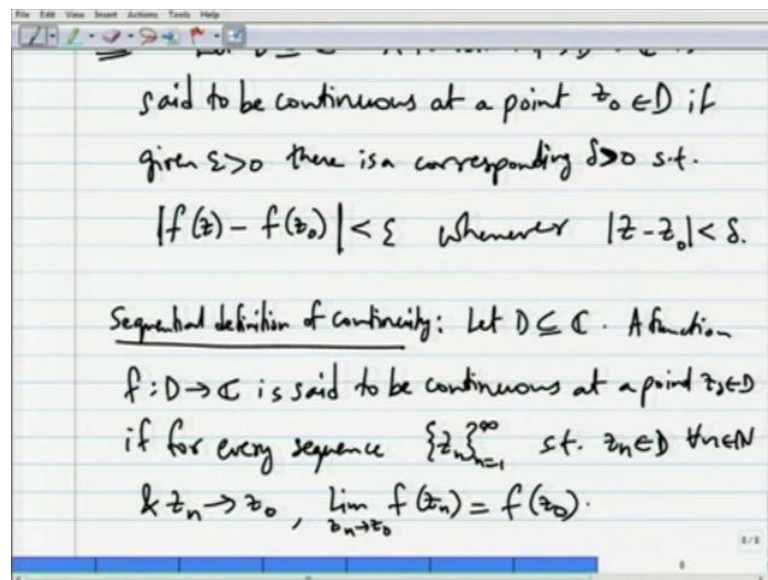 File Edit View Insert Actions Tools Help
said to be continuous at a point z₀ ∈ D if
given ε>0 there is a corresponding δ>0 s.t.
|f(z) - f(z₀)| < ε whenever |z - z₀| < δ.
Sequential definition of continuity: Let D ⊆ ℂ. A function
f : D → ℂ is said to be continuous at a point z₀ ∈ D
if for every sequence {zₙ}ₙ₌₁^∞ s.t. zₙ ∈ D ∀n∈ℕ
& zₙ → z₀, lim_{zₙ→z₀} f(zₙ) = f(z₀).
8/8